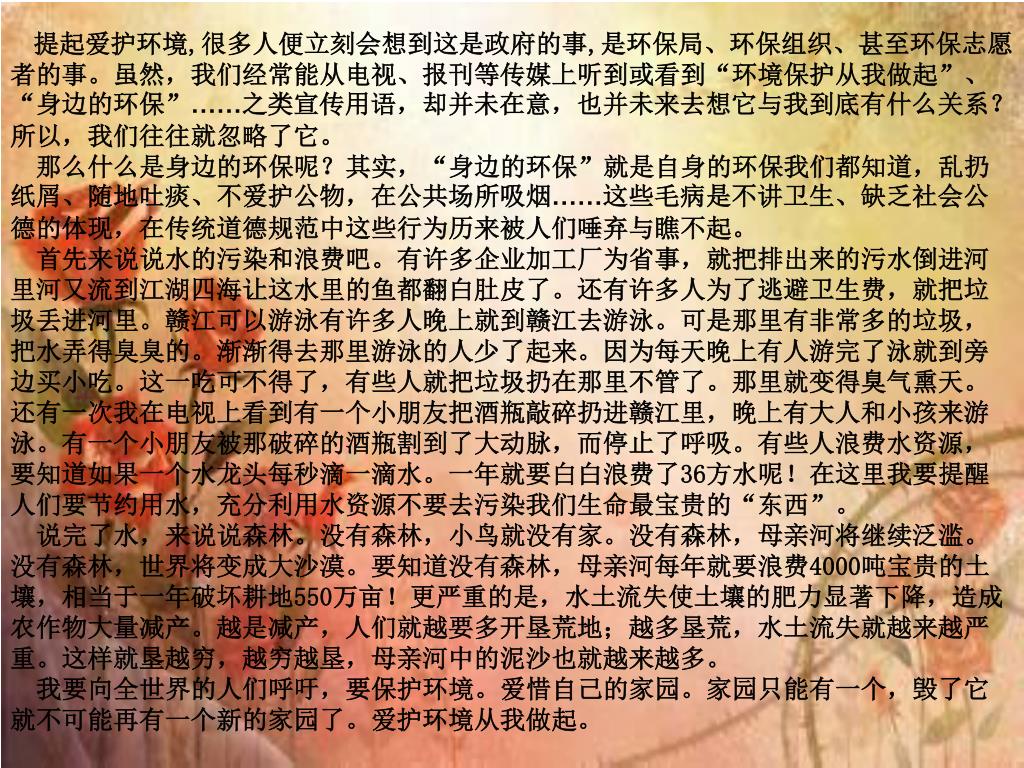 提起爱护环境,很多人便立刻会想到这是政府的事,是环保局、环保组织、甚至环保志愿
者的事。虽然，我们经常能从电视、报刊等传媒上听到或看到“环境保护从我做起”、
“身边的环保”……之类宣传用语，却并未在意，也并未来去想它与我到底有什么关系？
所以，我们往往就忽略了它。
那么什么是身边的环保呢？其实，“身边的环保”就是自身的环保我们都知道，乱扔
纸屑、随地吐痰、不爱护公物，在公共场所吸烟……这些毛病是不讲卫生、缺乏社会公
德的体现，在传统道德规范中这些行为历来被人们唾弃与瞧不起。
首先来说说水的污染和浪费吧。有许多企业加工厂为省事，就把排出来的污水倒进河
里河又流到江湖四海让这水里的鱼都翻白肚皮了。还有许多人为了逃避卫生费，就把垃
圾丢进河里。赣江可以游泳有许多人晚上就到赣江去游泳。可是那里有非常多的垃圾，
把水弄得臭臭的。渐渐得去那里游泳的人少了起来。因为每天晚上有人游完了泳就到旁
边买小吃。这一吃可不得了，有些人就把垃圾扔在那里不管了。那里就变得臭气熏天。
还有一次我在电视上看到有一个小朋友把酒瓶敲碎扔进赣江里，晚上有大人和小孩来游
泳。有一个小朋友被那破碎的酒瓶割到了大动脉，而停止了呼吸。有些人浪费水资源，
要知道如果一个水龙头每秒滴一滴水。一年就要白白浪费了36方水呢！在这里我要提醒
人们要节约用水，充分利用水资源不要去污染我们生命最宝贵的“东西”。
说完了水，来说说森林。没有森林，小鸟就没有家。没有森林，母亲河将继续泛滥。
没有森林，世界将变成大沙漠。要知道没有森林，母亲河每年就要浪费4000吨宝贵的土
壤，相当于一年破坏耕地550万亩！更严重的是，水土流失使土壤的肥力显著下降，造成
农作物大量减产。越是减产，人们就越要多开垦荒地；越多垦荒，水土流失就越来越严
重。这样就垦越穷，越穷越垦，母亲河中的泥沙也就越来越多。
我要向全世界的人们呼吁，要保护环境。爱惜自己的家园。家园只能有一个，毁了它
就不可能再有一个新的家园了。爱护环境从我做起。